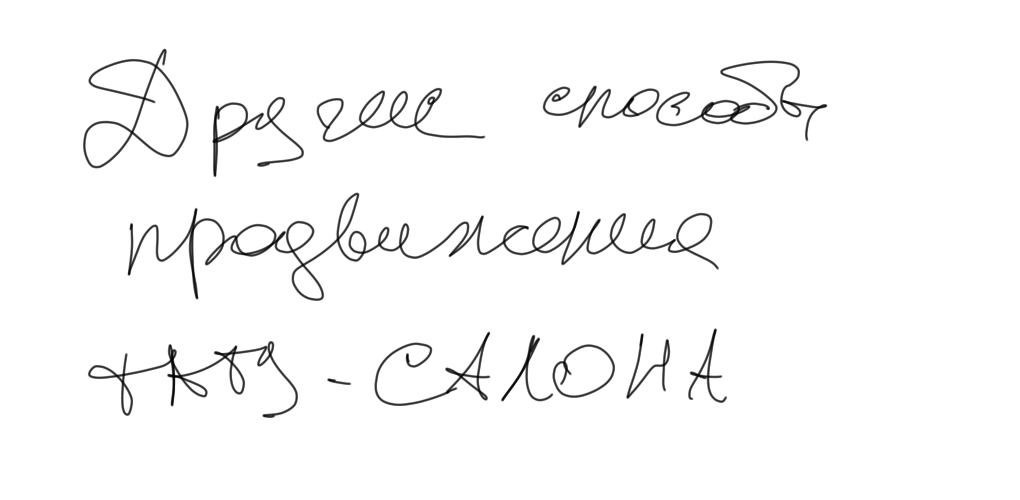 Другие способы
продвижения
тату-САЛОНА